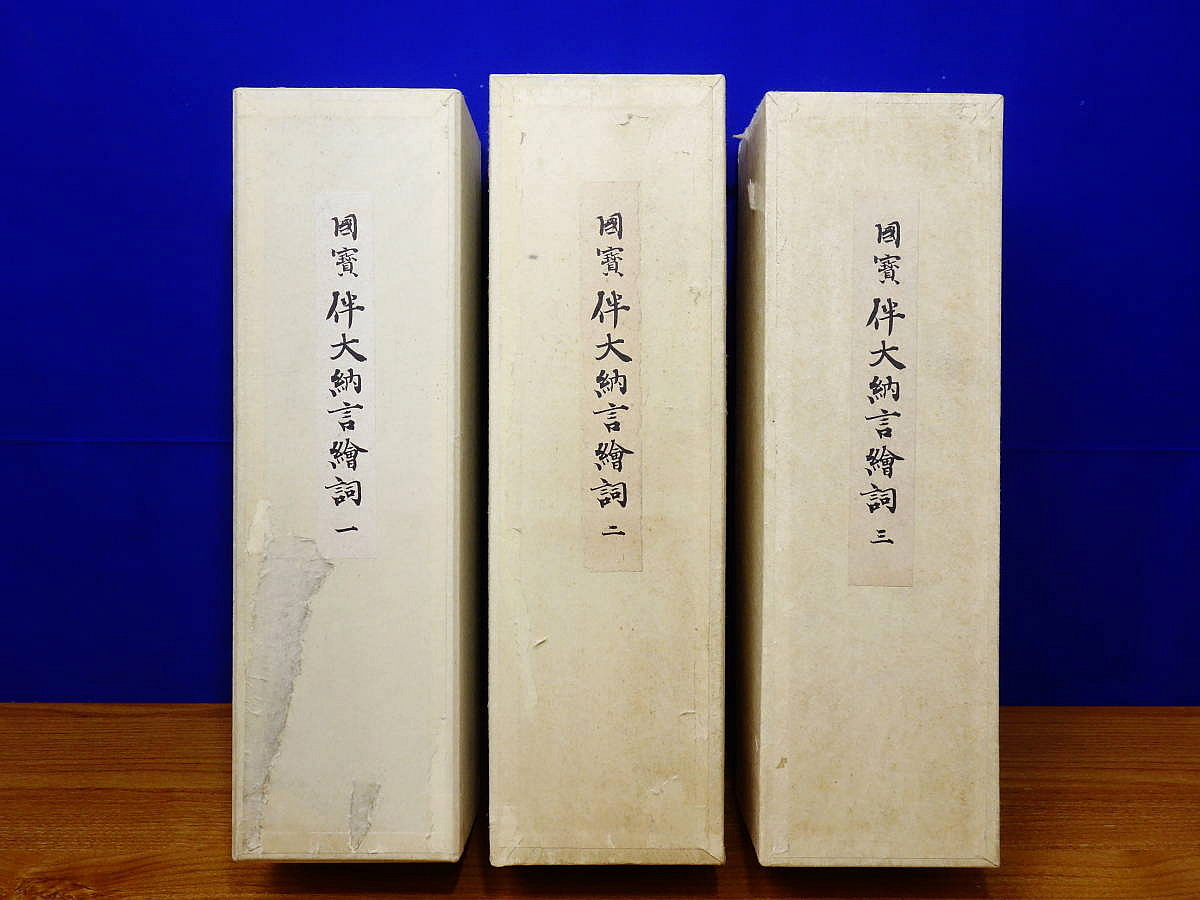 國寶 伴大納言繪詞 一
國寶 伴大納言繪詞 二
國寶 伴大納言繪詞 三